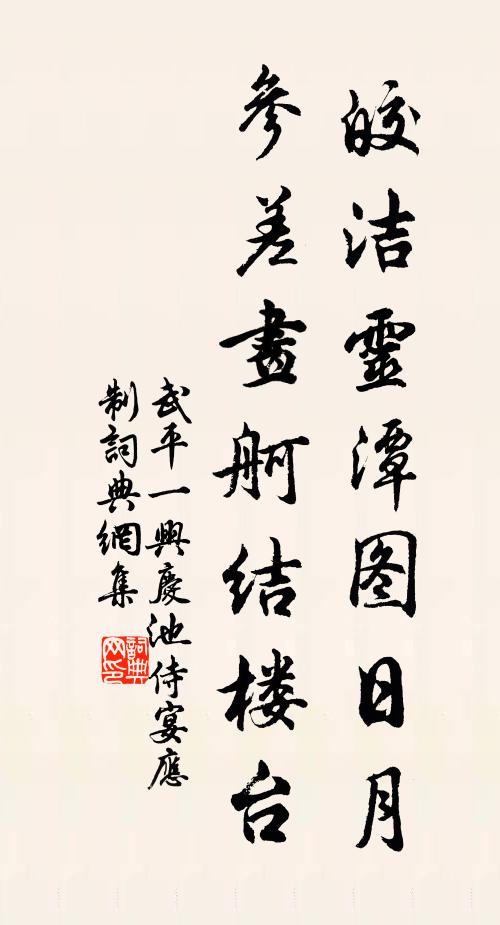 皎洁靈潭图日月
參差畫舸结楼台
武平一興慶池侍宴應
制詞典網集
詞典
网印